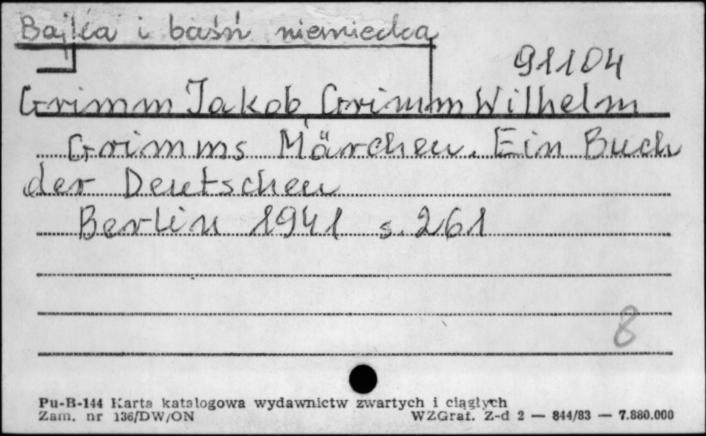 Bajka i baśń niemiecka
91104
Grimm Jakob, Grimm Wilhelm
Grimms Märchen. Ein Buch
der Deutschen
Berlin 1941 s. 261
8
Pu-B-144 Karta katalogowa wydawnictw zwartych i ciągłych
Zam. nr 136/DW/ON WZGraf. Z-d 2 — 844/83 — 7.880.000